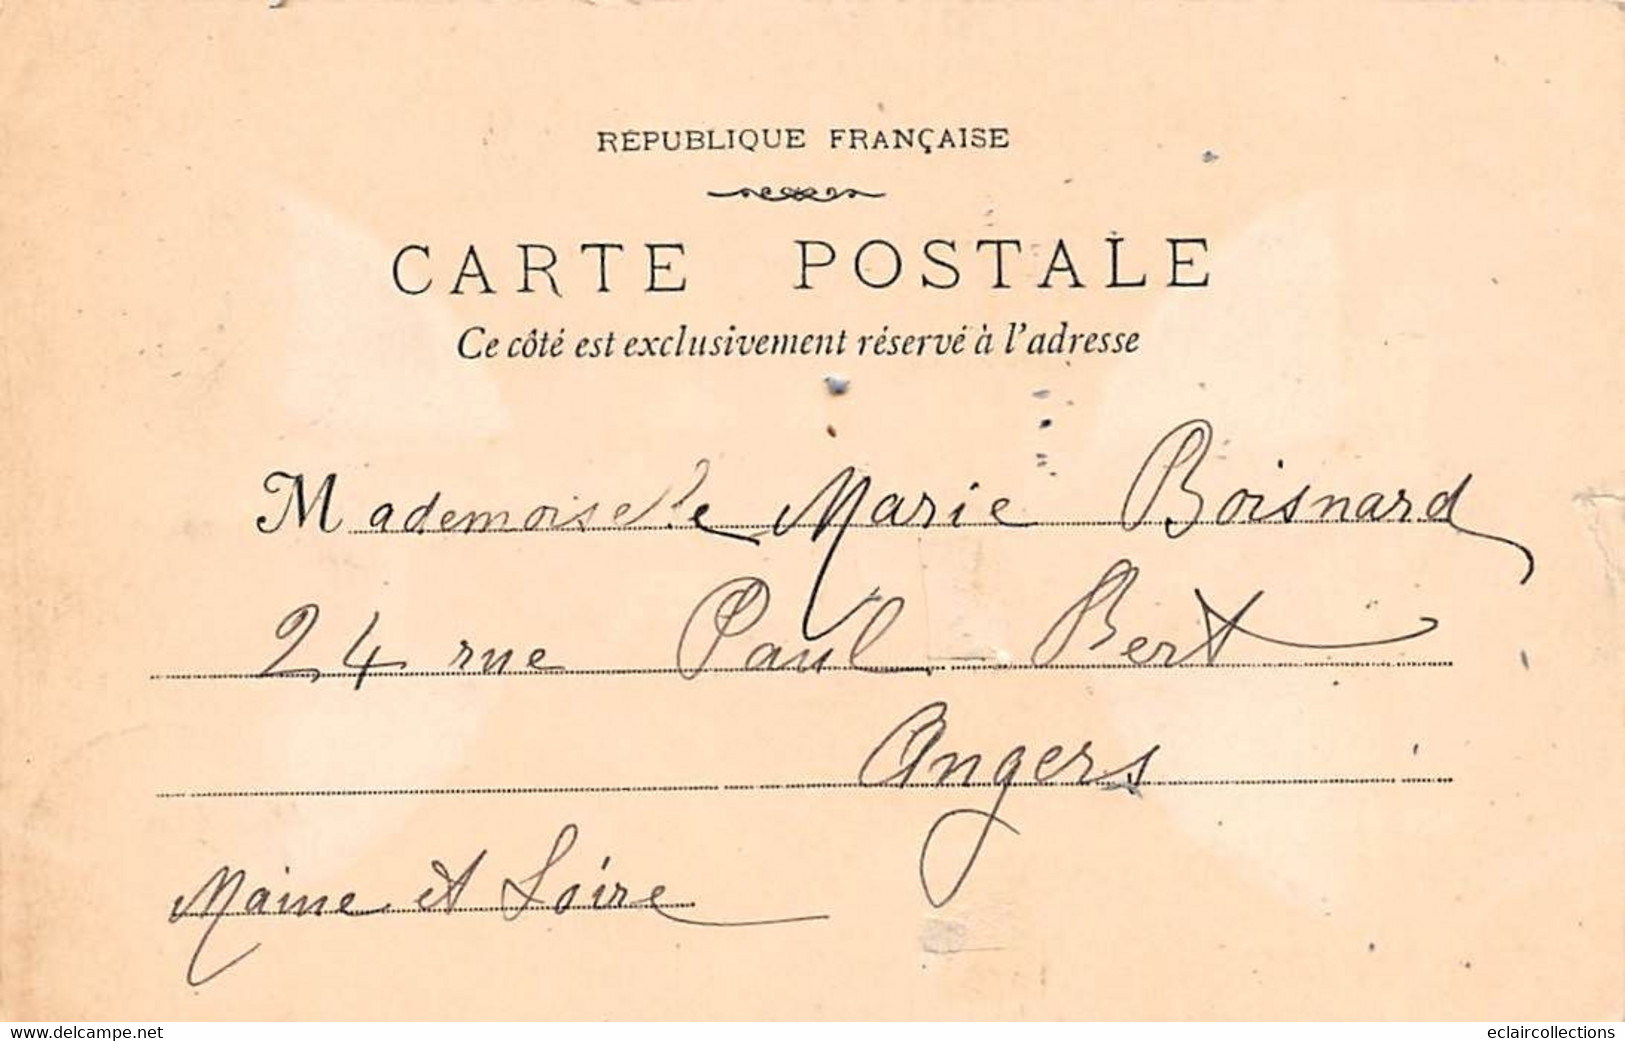 RÉPUBLIQUE FRANÇAISE
CARTE POSTALE
Ce côté est exclusivement réservé à l'adresse
Mademoiselle Marie Boisnard
24 rue Paul Bert
Angers
Maine et Loire
www.delcampe.net
eclaircollections